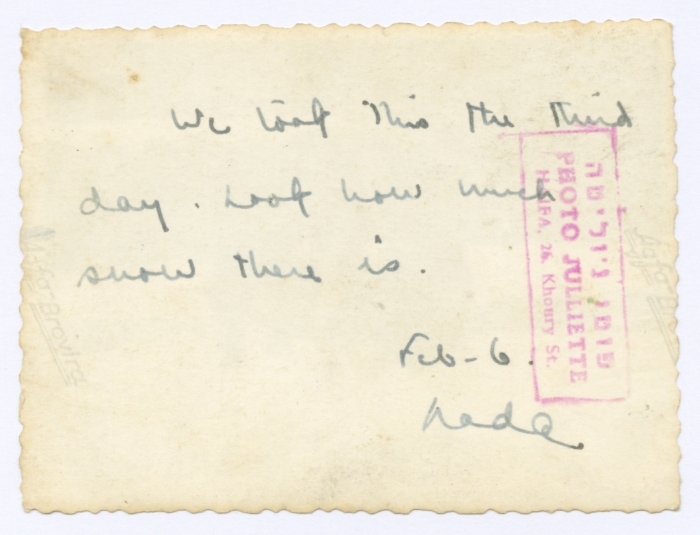 We took this the third
day. Look how much
snow there is.
Feb-6.
Nada
PHOTO JULLIETTE
HAIFA, 26, Khoury St.
Agfa-Brovira
Agfa Bro